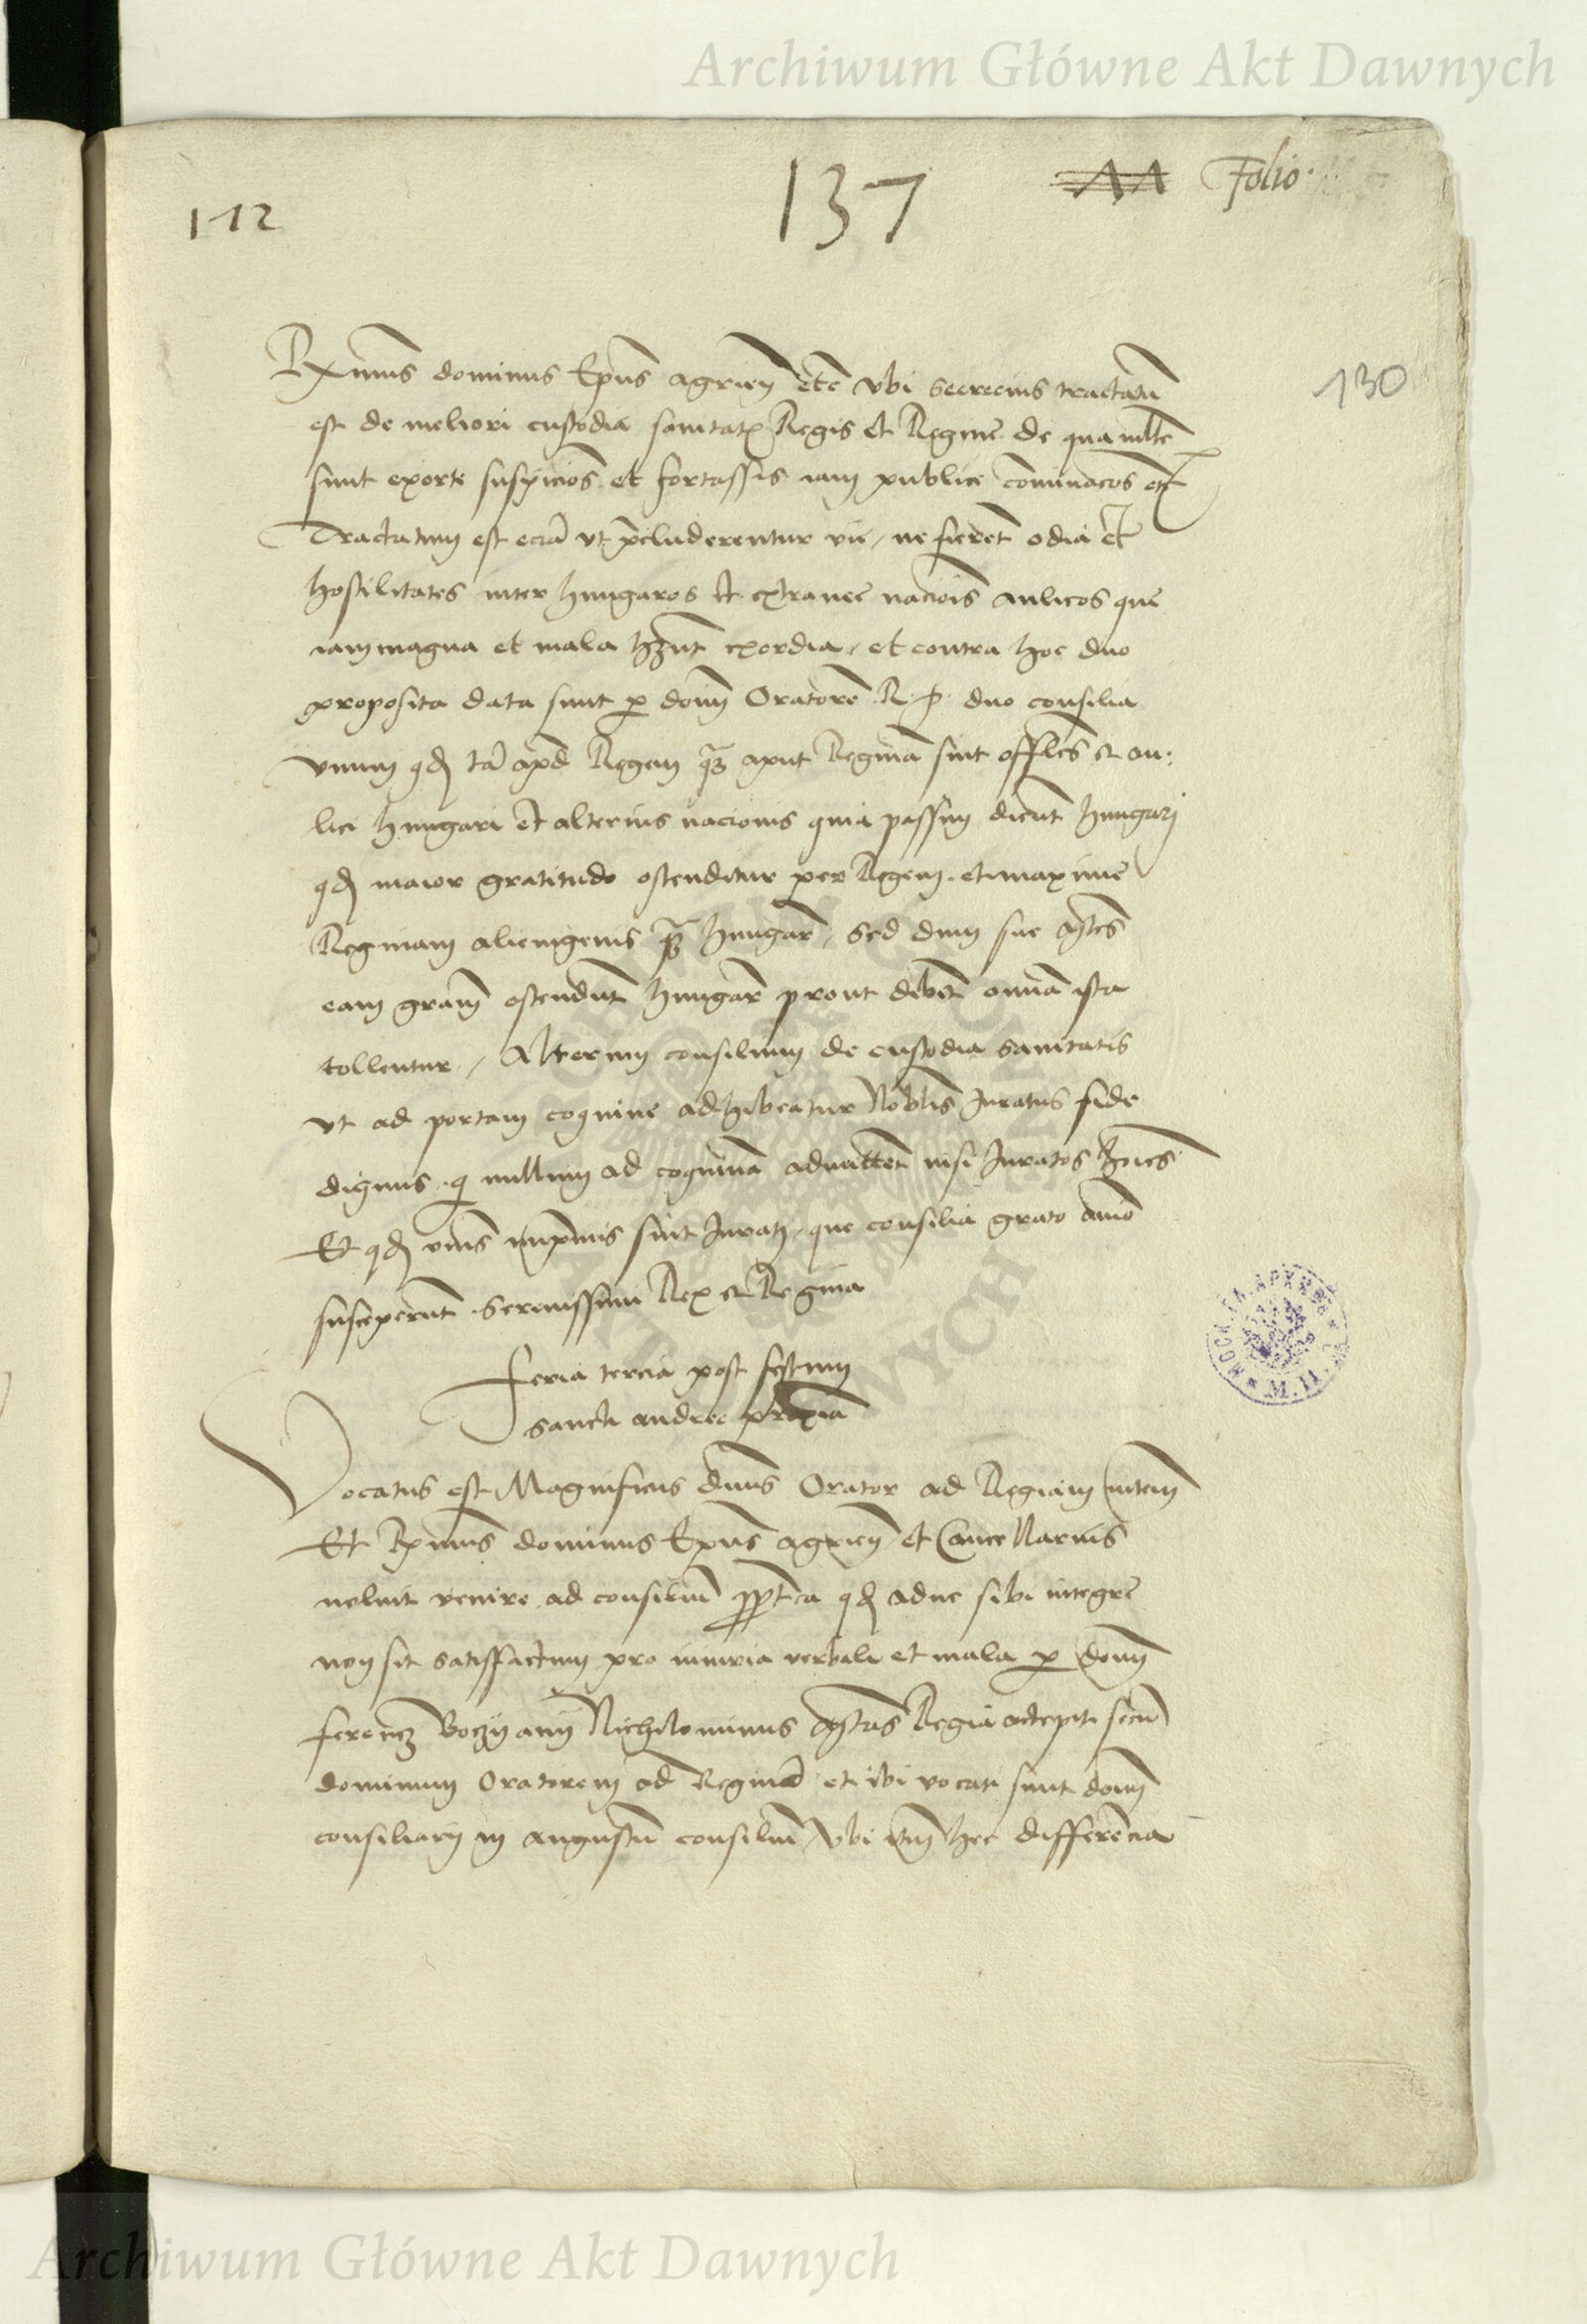 Archiwum Główne Akt Dawnych
112
137
Folio
130
Rx̃mus dominus Ep̃us agrieñ etc̃ vbi secrecius tractatũ
est de meliori custodia sanitatꝭ Regis et Regine de qua mltẽ
sunt exorte suspicioẽs et fortassis iam publice cominacoẽs etc̃
Tractatum est eciã vt p̃cluderentur vie / ne fierẽt odia et
hostilitates inter hungaros et extranee nacioĩs aulicos que
iam magna et mala hñt exordia / et contra hoc duo
proposita data sunt ꝑ doñm Oratorẽ R. P. duo consilia
vnum qđ tã apđ Regem qꝫ aput Reginã sint offi͠les et au:
lici hungari et alterius nacionis quia passim dicũt hungarj
qđ maior gratitudo ostenditur per Regem. et maxime
Reginam alienigenis qꝫ hungaꝝ / Sed dum sue Mtẽs
eam grãm ostendũt hungaꝝ prout debẽt om̃ia ista
tollentur / Alterum consilium de custodia sanitatis
vt ad portam coquine adhibeatur Nobĩlis Juratus fide
dignus. qi nullum ad coquinã admittet nisi Juratos hoĩes
Et qđ vinis imprimis sint Juratj / que consilia grato aĩo
susceperũt Serenissimi Rex et Regina
Feria tercia post festum
sancti andree proximã
Vocatus est Magnificus dñus Orator ad Regiam mtẽm
Et Rx̃mus dominus Ep̃us agrieñ et Cancellarius
noluit venire ad consiliũ ꝓpterea qđ aduc sibi integre
non sit satisfactum pro iniuria verbali et mala ꝑ doñm
ferencz Boczyanij Nichilominus Mtãs Regia accepit secũ
dominum Oratorem ad Reginã et ibi vocati sunt doñi
consiliarij in angustũ consiliũ / vbi itẽm hec differẽcia
Archiwum Główne Akt Dawnych